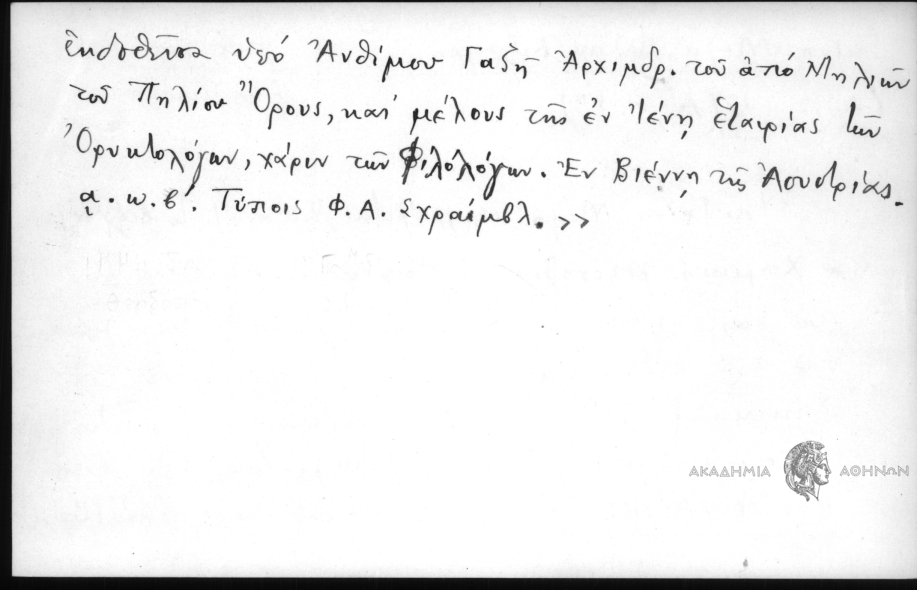 ἐκδοθεῖσα ὑπό Ἀνθίμου Γαζῆ Ἀρχιμδρ. τοῦ ἀπό Μηλιῶν
τοῦ Πηλίου Ὄρους, καί μέλους τῆς ἐν Ἰένῃ ἑταιρίας τῶν
Ὀρυκτολόγων, χάριν τῶν Φιλολόγων. Ἐν Βιέννῃ τῆς Ἀουστρίας.
α. ω. β΄. Τύποις Φ. Α. Σχραίμβλ. >>
ΑΚΑΔΗΜΙΑ ΑΘΗΝΩΝ